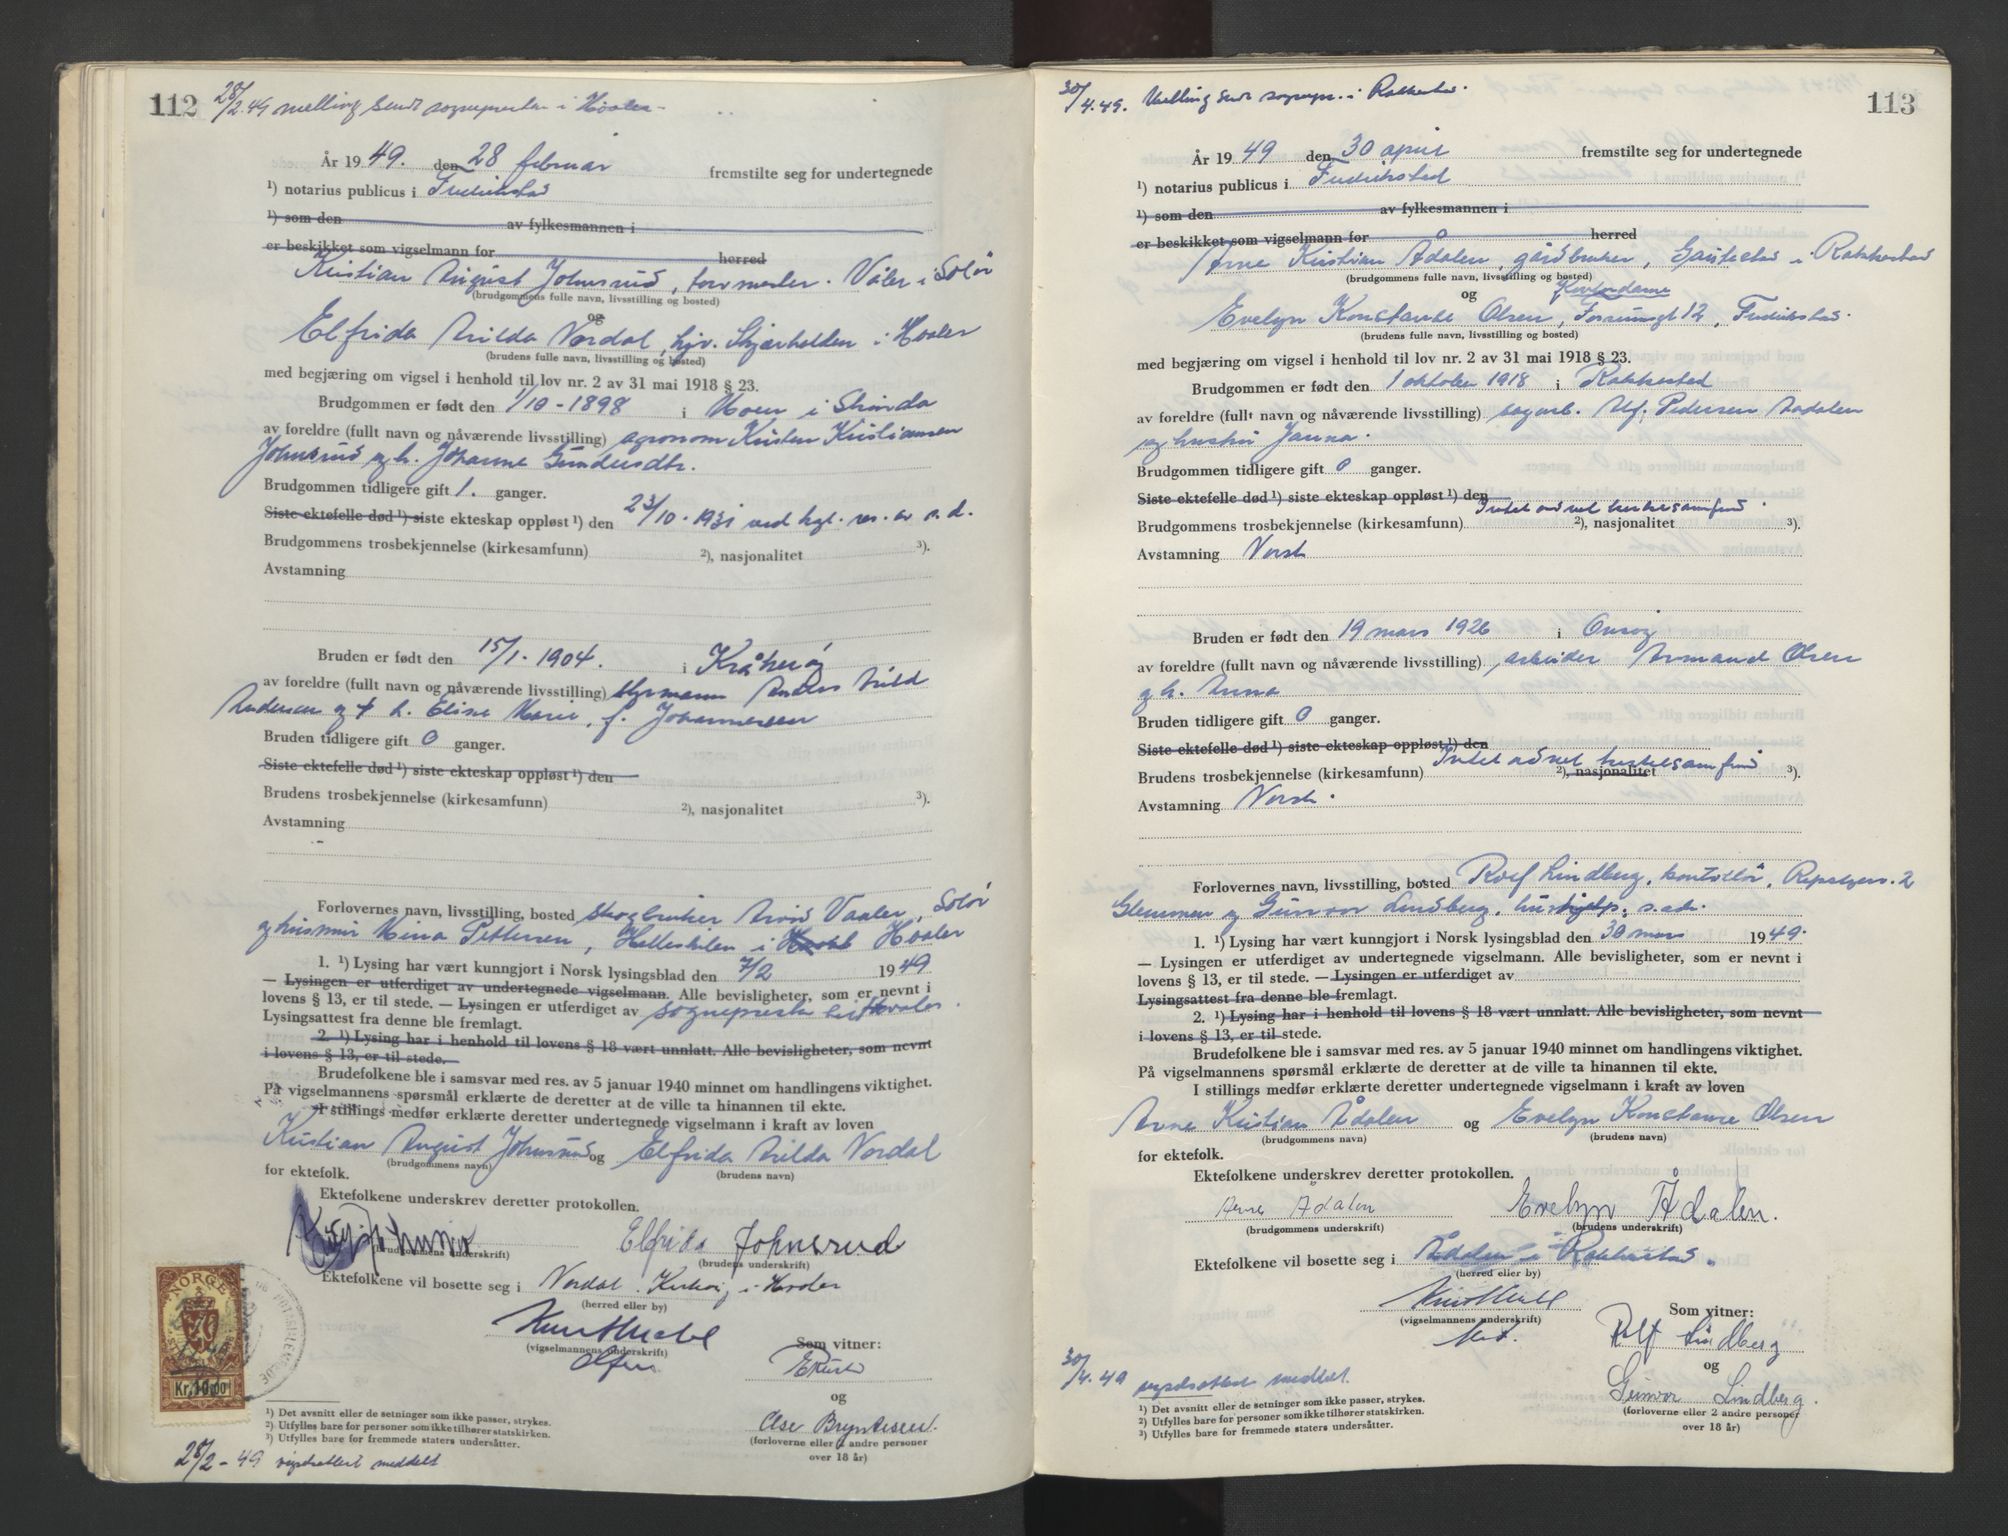 112
28/2.49 melding sendt sognepresten i Hvaler.
År 1949. den 28 februar fremstilte seg for undertegnede
¹) notarius publicus i Fredrikstad
¹) som den av fylkesmannen i
er beskikket som vigselmann for herred
Kristian August Johnsrud, tørvmester. Våler i Solør
(brudgommens fulle navn, livsstilling og bosted)
og
Elfrida Arilda Nordal, hjv. Skjærhalden i Hvaler
(brudens fulle navn, livsstilling og bosted)
med begjæring om vigsel i henhold til lov nr. 2 av 31 mai 1918 § 23.
Brudgommen er født den 1/10-1898 i Moen i Strinda
av foreldre (fullt navn og nåværende livsstilling) agronom Kristen Kristiansen
Johnsrud og h. Johanne Gundersdtr.
Brudgommen tidligere gift 1. ganger.
Siste ektefelle død ¹) siste ekteskap oppløst ¹) den 23/10.1931 ved kgl. res. av s. d.
Brudgommens trosbekjennelse (kirkesamfunn) ²), nasjonalitet ³).
Avstamning
Bruden er født den 15/1-1904. i Kråkerøy
av foreldre (fullt navn og nåværende livsstilling) styrmann Anders Arild
Andersen og h. Elise Marie, f. Johannessen
Bruden tidligere gift 0 ganger.
Siste ektefelle død ¹) siste ekteskap oppløst ¹) den
Brudens trosbekjennelse (kirkesamfunn) ²), nasjonalitet ³).
Avstamning
Forlovernes navn, livsstilling, bosted skogbruker Arvid Vaaler, Solør
og husmor Mena Pettersen, Helleskilen i Hvaler
1. ¹) Lysing har vært kunngjort i Norsk lysingsblad den 7/2 1949
— Lysingen er utferdiget av undertegnede vigselmann. Alle bevisligheter, som er nevnt i
lovens § 13, er til stede. — Lysingen er utferdiget av sognepresten i Hvaler.
Lysingsattest fra denne ble fremlagt.
2. ¹) Lysing har i henhold til lovens § 18 vært unnlatt. Alle bevisligheter, som nevnt
i lovens § 13, er til stede.
Brudefolkene ble i samsvar med res. av 5 januar 1940 minnet om handlingens viktighet.
På vigselmannens spørsmål erklærte de deretter at de ville ta hinannen til ekte.
I stillings medfør erklærte deretter undertegnede vigselmann i kraft av loven
Kristian August Johnsrud og Elfrida Arilda Nordal
(brudgommens navn) (brudens navn)
for ektefolk.
Ektefolkene underskrev deretter protokollen.
Elfrida Johnsrud
(brudgommens underskrift) (brudens underskrift)
Ektefolkene vil bosette seg i Nordal, Kirkøy i Hvaler
(herred eller by)
(vigselmannens underskrift)
Som vitner:
og
Else Bryntesen.
(forloverne eller 2 andre personer
over 18 år)
NORGE
Kr. 10,00
¹) Det avsnitt eller de setninger som ikke passer, strykes.
²) Utfylles bare for personer som ikke tilhører statskirken.
³) Utfylles bare for fremmede staters undersåtter.
28/2-49 vigselsattest meddelt
113
30/4.49. Melding sendt sognepr. i Rakkestad.
År 1949 den 30 april fremstilte seg for undertegnede
¹) notarius publicus i Fredrikstad
¹) som den av fylkesmannen i
er beskikket som vigselmann for herred
Arne Kristian Ådalen, gårdbruker, Gautestad i Rakkestad
(brudgommens fulle navn, livsstilling og bosted)
og kontordame
Evelyn Konstanse Olsen, Forsumsgt 12, Fredrikstad.
(brudens fulle navn, livsstilling og bosted)
med begjæring om vigsel i henhold til lov nr. 2 av 31 mai 1918 § 23.
Brudgommen er født den 1 oktober 1918 i Rakkestad
av foreldre (fullt navn og nåværende livsstilling) sagarb. Alf. Pedersen Aadalen
og hustru Janna.
Brudgommen tidligere gift 0 ganger.
Siste ektefelle død ¹) siste ekteskap oppløst ¹) den
Brudgommens trosbekjennelse (kirkesamfunn) Intet ordnet kirkesamfund. ²), nasjonalitet ³).
Avstamning Norsk
Bruden er født den 19 mars 1926 i Onsøy
av foreldre (fullt navn og nåværende livsstilling) arbeider Armand Olsen
og h. Anna
Bruden tidligere gift 0 ganger.
Siste ektefelle død ¹) siste ekteskap oppløst ¹) den
Brudens trosbekjennelse (kirkesamfunn) Intet ordnet kirkesamfund ²), nasjonalitet ³).
Avstamning Norsk.
Forlovernes navn, livsstilling, bosted Rolf Lindberg, kontorist, 2
Glemmen og Gunvor Lindberg, hushjelp, s. adr.
1. ¹) Lysing har vært kunngjort i Norsk lysingsblad den 30 mars 1949.
— Lysingen er utferdiget av undertegnede vigselmann. Alle bevisligheter, som er nevnt i
lovens § 13, er til stede. — Lysingen er utferdiget av
Lysingsattest fra denne ble fremlagt.
2. ¹) Lysing har i henhold til lovens § 18 vært unnlatt. Alle bevisligheter, som nevnt
i lovens § 13, er til stede.
Brudefolkene ble i samsvar med res. av 5 januar 1940 minnet om handlingens viktighet.
På vigselmannens spørsmål erklærte de deretter at de ville ta hinannen til ekte.
I stillings medfør erklærte deretter undertegnede vigselmann i kraft av loven
Arne Kristian Ådalen og Evelyn Konstanse Olsen
(brudgommens navn) (brudens navn)
for ektefolk.
Ektefolkene underskrev deretter protokollen.
Arne Ådalen Evelyn Ådalen.
(brudgommens underskrift) (brudens underskrift)
Ektefolkene vil bosette seg i Ådalen i Rakkestad.
(herred eller by)
(vigselmannens underskrift)
Som vitner:
Rolf Lindberg
og
Gunvor Lindberg.
(forloverne eller 2 andre personer
over 18 år)
30/4.49 vigselsattest meddelt.
¹) Det avsnitt eller de setninger som ikke passer, strykes.
²) Utfylles bare for personer som ikke tilhører statskirken.
³) Utfylles bare for fremmede staters undersåtter.